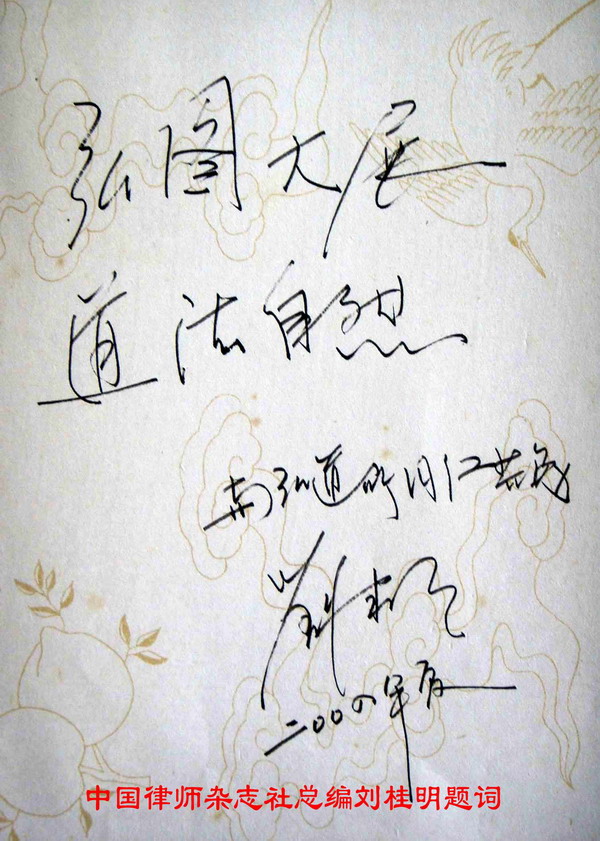 弘图大展
道法自然
与弘道所同仁共勉
刘桂明
二00四年夏
中国律师杂志社总编刘桂明题词